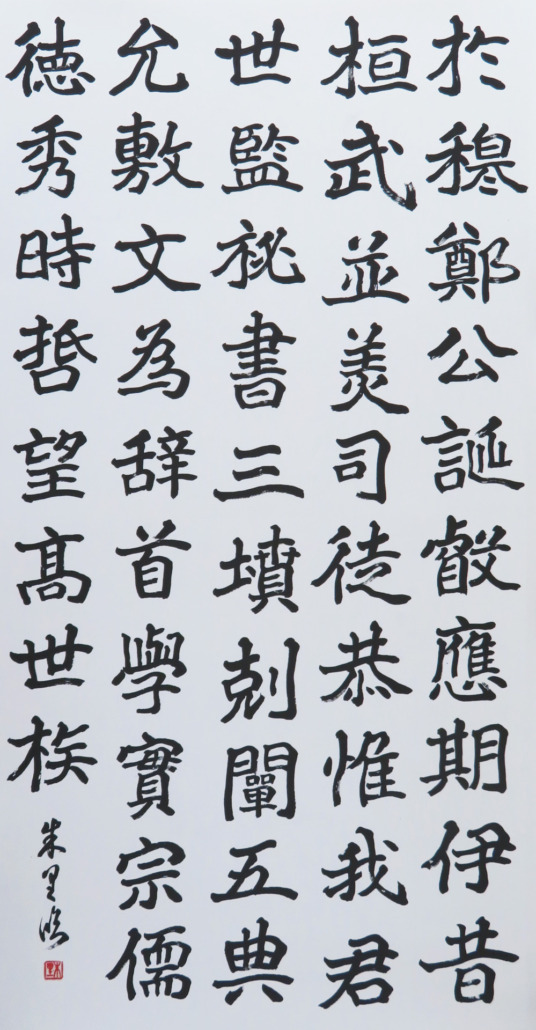 於穆鄭公誕叡應期伊昔
桓武並美司徒恭惟我君
世監祕書三墳剋闡五典
允敷文為辞首學實宗儒
徳秀時哲望髙世族